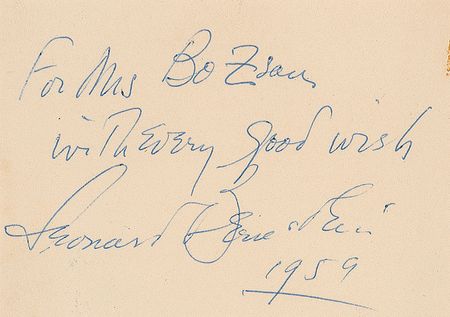 For Ms Bo Zsan
with every good wish
Leonard Bernstein
1959